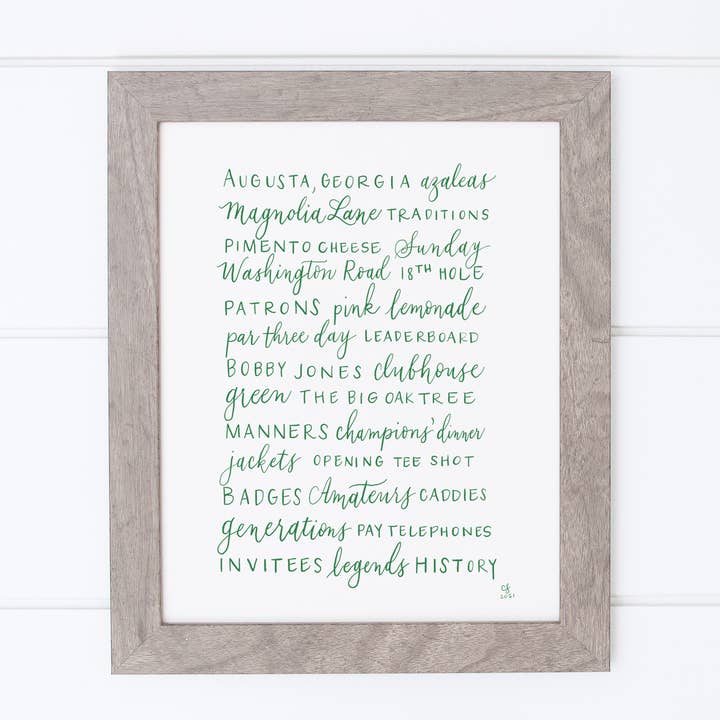 AUGUSTA, GEORGIA azaleas
Magnolia Lane TRADITIONS
PIMENTO CHEESE Sunday
Washington Road 18TH HOLE
PATRONS pink lemonade
par three day LEADERBOARD
BOBBY JONES clubhouse
green THE BIG OAK TREE
MANNERS champions' dinner
jackets OPENING TEE SHOT
BADGES Amateurs CADDIES
generations PAY TELEPHONES
INVITEES legends HISTORY
2021